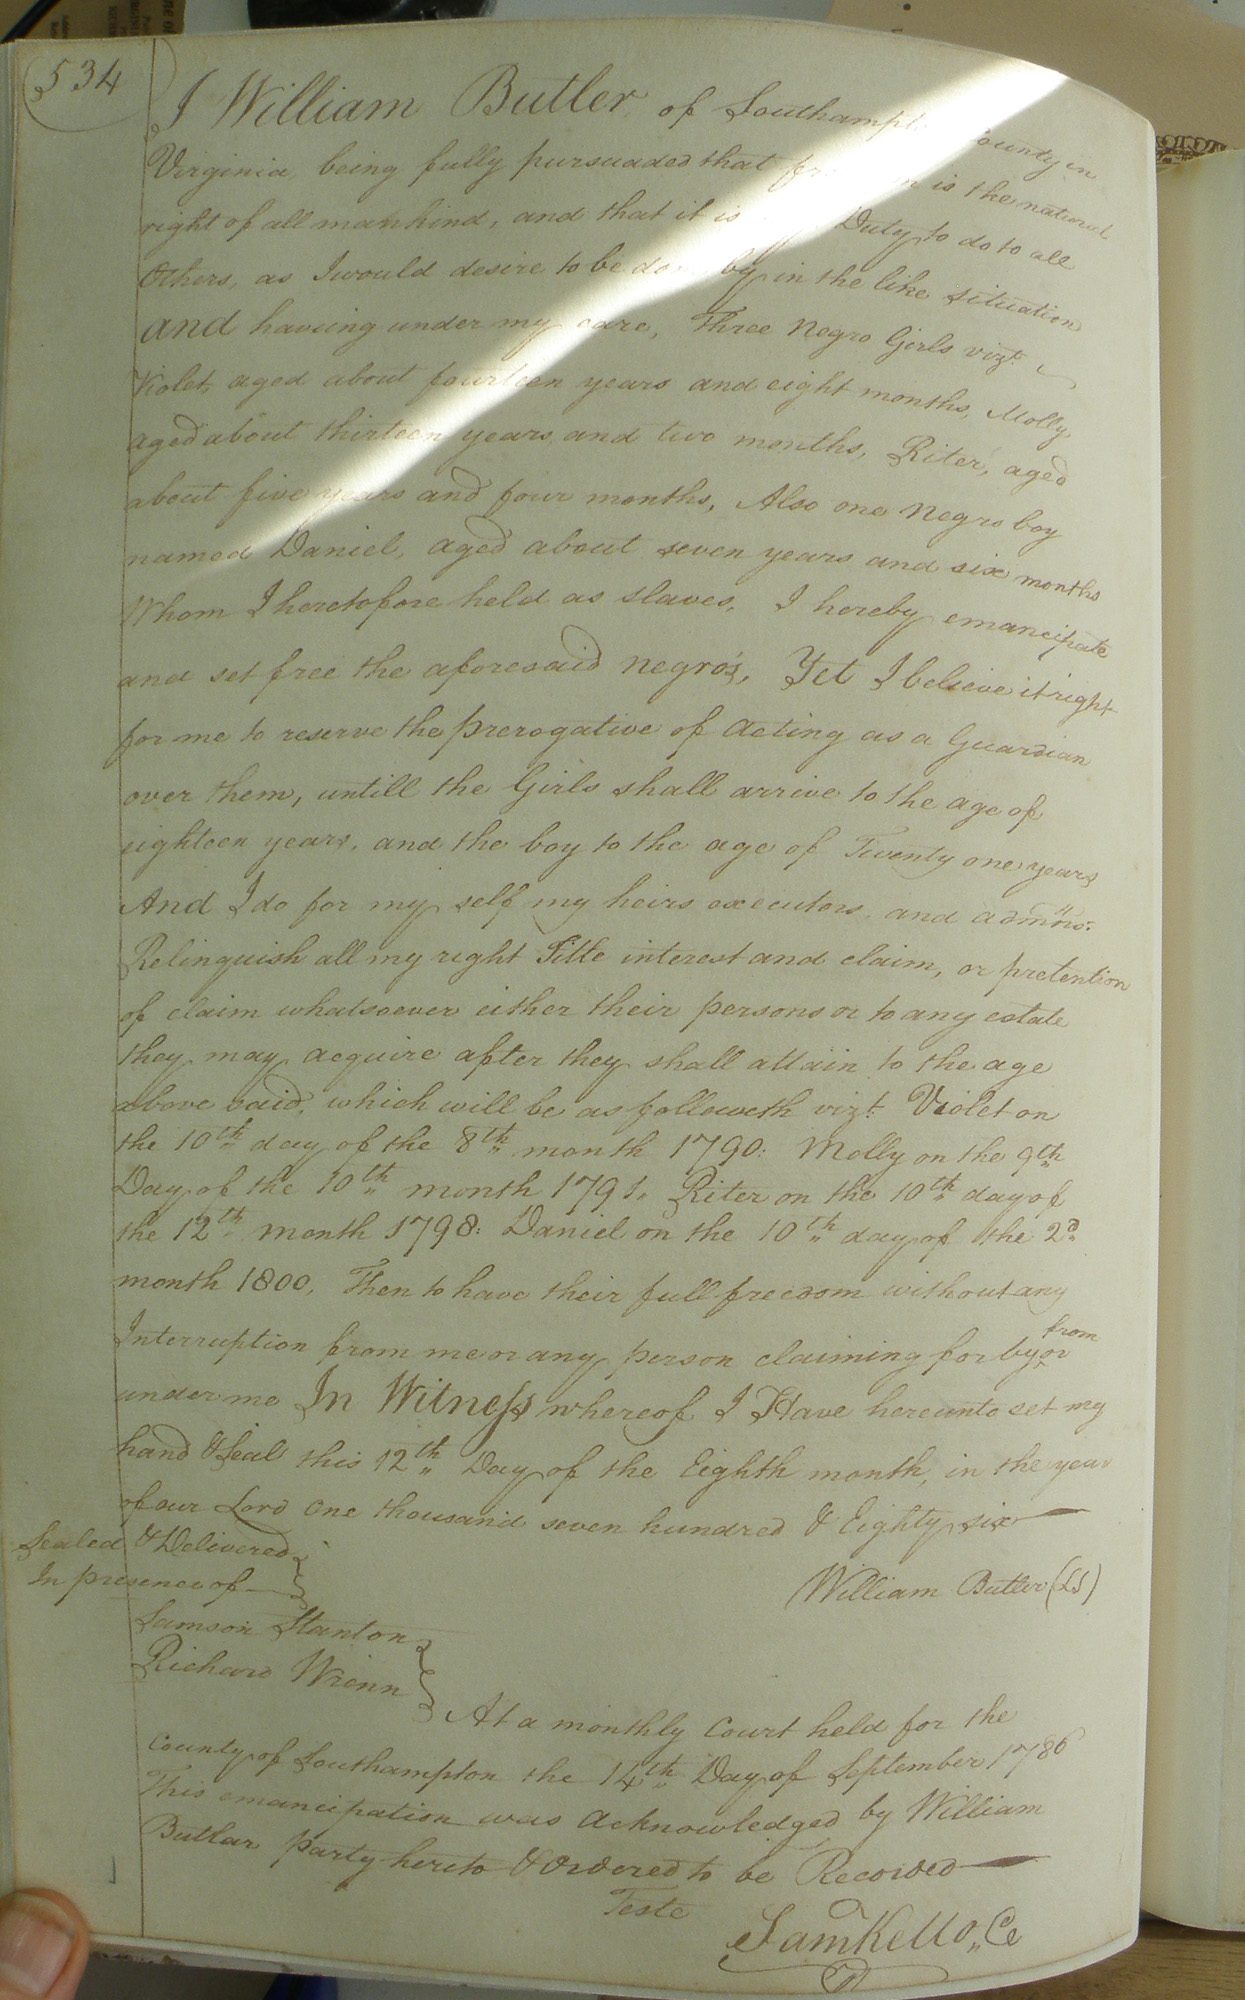 534
I William Butler of Southampt County in
Virginia being fully pursuaded that is the natural
right of all mankind, and that it is Duty to do to all
Others, as I would desire to be done by in the like situation
and haveing under my care, Three Negro Girls vizt.
Violet, aged about fourteen years and eight months, Molly,
aged about thirteen years, and two months, Riter, aged
about five years and four months, Also one Negro boy
named Daniel, aged about seven years and six months
Whom I heretofore held as slaves, I hereby emancipate
and set free the aforesaid negro's, Yet I believe it right
for me to reserve the prerogative of acting as a Guardian
over them, untill the Girls shall arrive to the age of
eighteen years, and the boy to the age of Twenty one years
And I do for my self my heirs executors and admns.
Relinquish all my right Title interest and claim, or pretention
of claim whatsoever either their persons or to any estate
they may acquire after they shall attain to the age
above said, which will be as followeth vizt. Violet on
the 10th day of the 8th month 1790: Molly on the 9th
Day of the 10th month 1791. Riter on the 10th day of
the 12th month 1798: Daniel on the 10th day of the 2d
month 1800, Then to have their full freedom without any
Interruption from me or any person claiming for by or from
under me In Witness whereof I Have hereunto set my
hand & Seal this 12th Day of the Eighth month, in the year
of our Lord One thousand seven hundred & Eighty six
Sealed & Delivered
In presence of
William Butler (LS)
Samson Stanton
Richard Wrenn
At a monthly Court held for the
County of Southampton the 14th Day of September 1786
This emancipation was acknowledged by William
Butlar party hereto & Ordered to be Recorded
Teste
Sam Kello, Cc